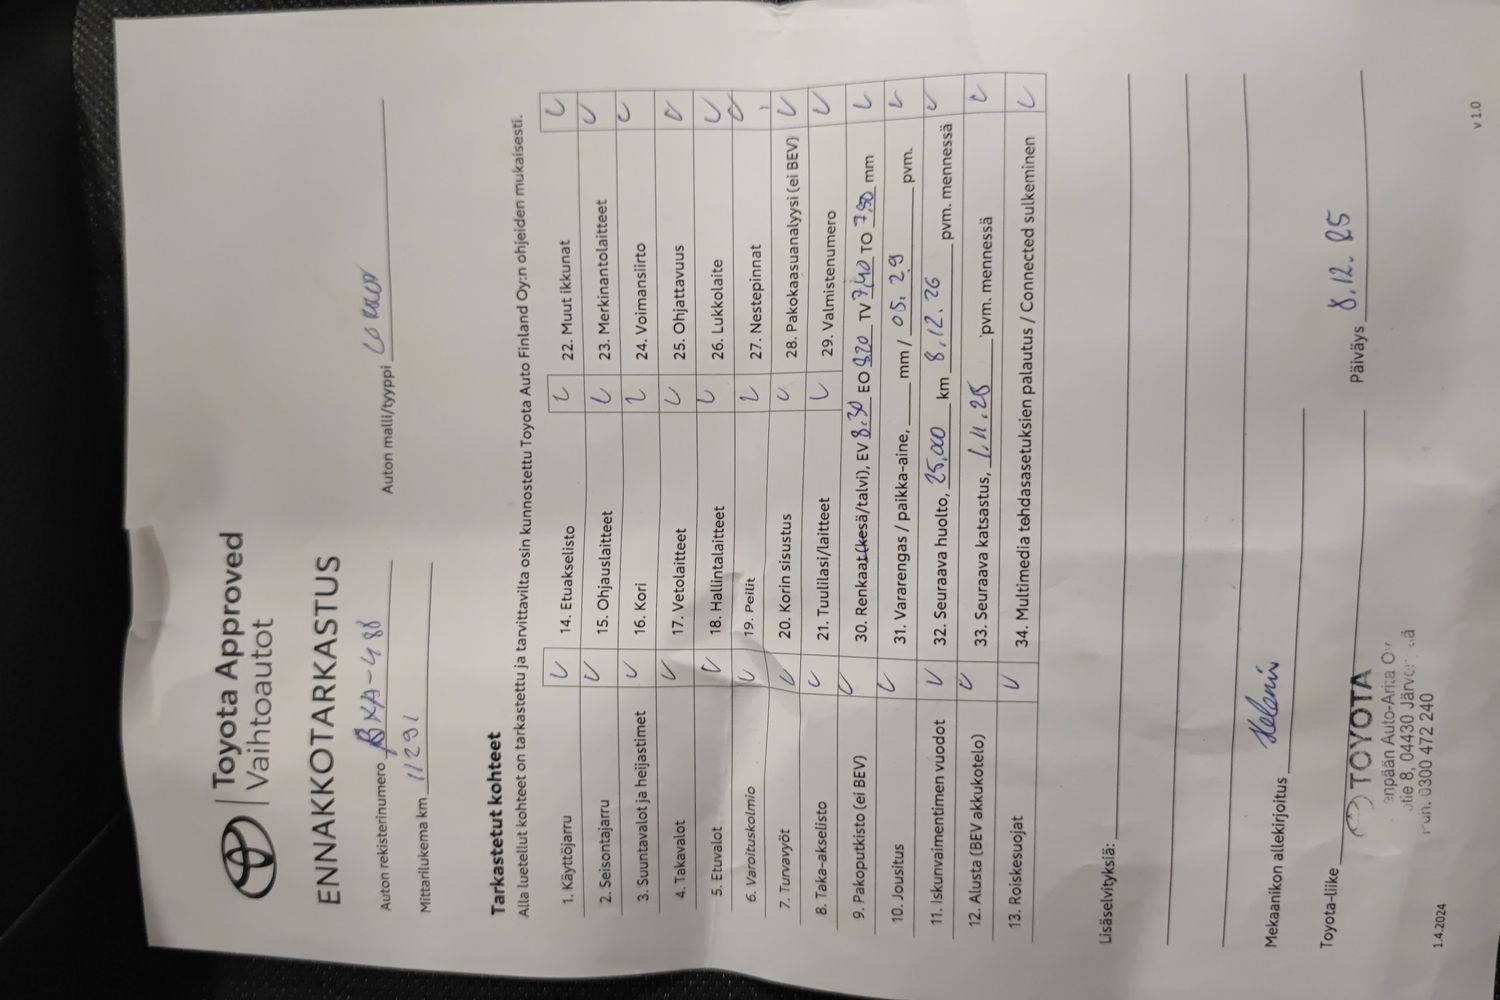 Toyota Approved
Vaihtoautot
ENNAKKOTARKASTUS
Auton rekisterinumero BXA-488 Auton malli/tyyppi
Mittarilukema km 11291
Tarkastetut kohteet
Alla luetellut kohteet on tarkastettu ja tarvittavilta osin kunnostettu Toyota Auto Finland Oy:n ohjeiden mukaisesti.
1. Käyttöjarru
2. Seisontajarru
3. Suuntavalot ja heijastimet
4. Takavalot
5. Etuvalot
6. Varoituskolmio
7. Turvavyöt
8. Taka-akselisto
9. Pakoputkisto (ei BEV)
10. Jousitus
11. Iskunvaimentimen vuodot
12. Alusta (BEV akkukotelo)
13. Roiskesuojat
14. Etuakselisto
15. Ohjauslaitteet
16. Kori
17. Vetolaitteet
18. Hallintalaitteet
19. Peilit
20. Korin sisustus
21. Tuulilasi/laitteet
22. Muut ikkunat
23. Merkinantolaitteet
24. Voimansiirto
25. Ohjattavuus
26. Lukkolaite
27. Nestepinnat
28. Pakokaasuanalyysi (ei BEV)
29. Valmistenumero
30. Renkaat (kesä/talvi), EV 8,30 EO 8,20 TV 7,40 TO 7,90 mm
31. Vararengas / paikka-aine, mm / 05.29 pvm.
32. Seuraava huolto, 25,000 km 8,12.26 pvm. mennessä
33. Seuraava katsastus, 1.11.28 pvm. mennessä
34. Multimedia tehdasasetuksien palautus / Connected sulkeminen
Lisäselvityksiä:
Mekaanikon allekirjoitus
Toyota-liike TOYOTA Päiväys 8.12.25
enpään Auto-Arita Oy
tie 8, 04430
0300 472 240
1.4.2024
v 1.0